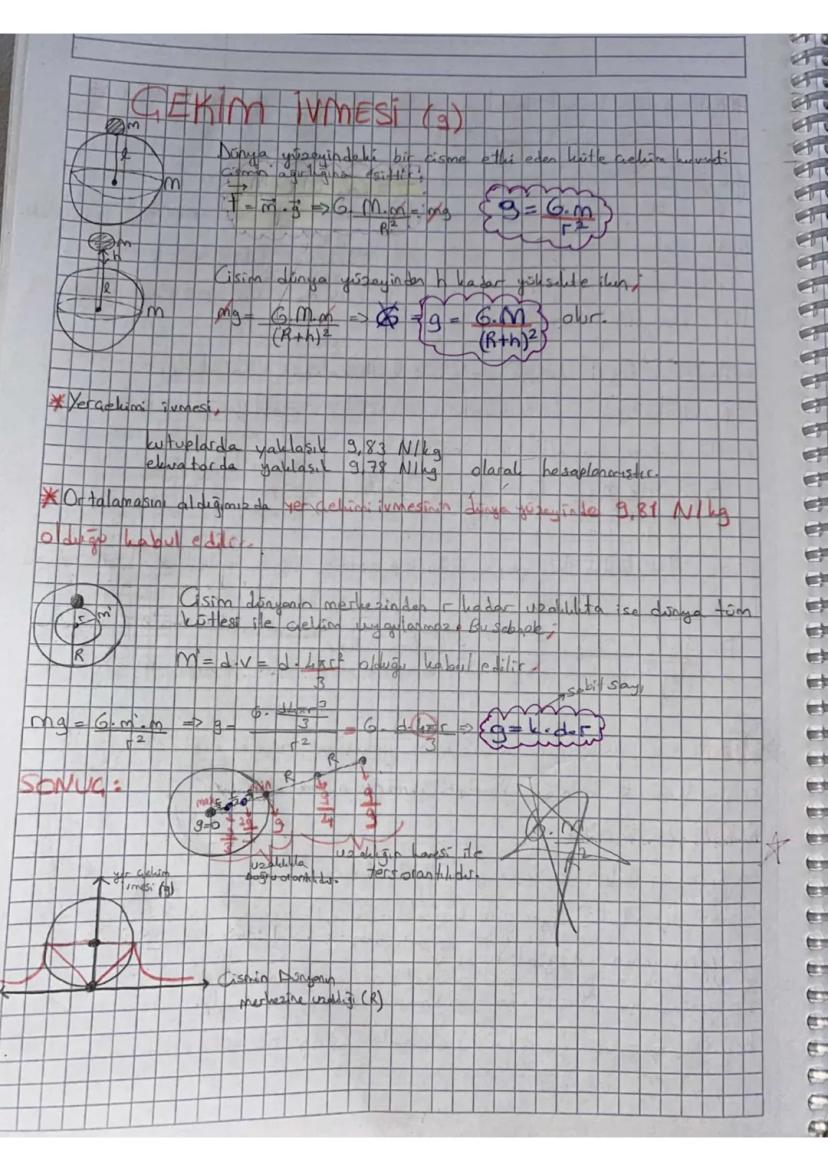 ÇEKİM İVMESİ (g)
m
R
M
Dünya yüzeyindeki bir cisme etki eden kütle çekim kuvveti
cismin ağırlığına eşittir.
F = m.g => G. M.m / R² = mg
g = G.M / r²
m
h
R
M
Cisim dünya yüzeyinden h kadar yüksekte iken;
mg = G.M.m / (R+h)² => g = G.M / (R+h)² olur.
*Yerçekimi ivmesi,
kutuplarda yaklaşık 9,83 N/kg
ekvatorda yaklaşık 9,78 N/kg olarak hesaplanmıştır.
*Ortalamasını aldığımızda yerçekimi ivmesinin dünya yüzeyinde 9,81 N/kg
olduğu kabul edilir.
r
m'
R
Cisim dünyanın merkezinden r kadar uzaklıkta ise dünya tüm
kütlesi ile çekim uygulanmaz. Bu sebeple;
m' = d.v = d. 4πr³ / 3 olduğu kabul edilir.
sabit sayı
mg = G.m'.m / r² => g = G. d4πr³ / 3 / r² = G. d4πr / 3 => g = k.d.r
SONUÇ:
g=0
g/3
2g/3
g
R
R
g/4
g/9
uzaklıkla
doğru orantılıdır.
uzaklığın karesi ile
ters orantılıdır.
G.M
r²
yer çekim
ivmesi (g)
Cismin Dünyanın
merkezine uzaklığı (R)